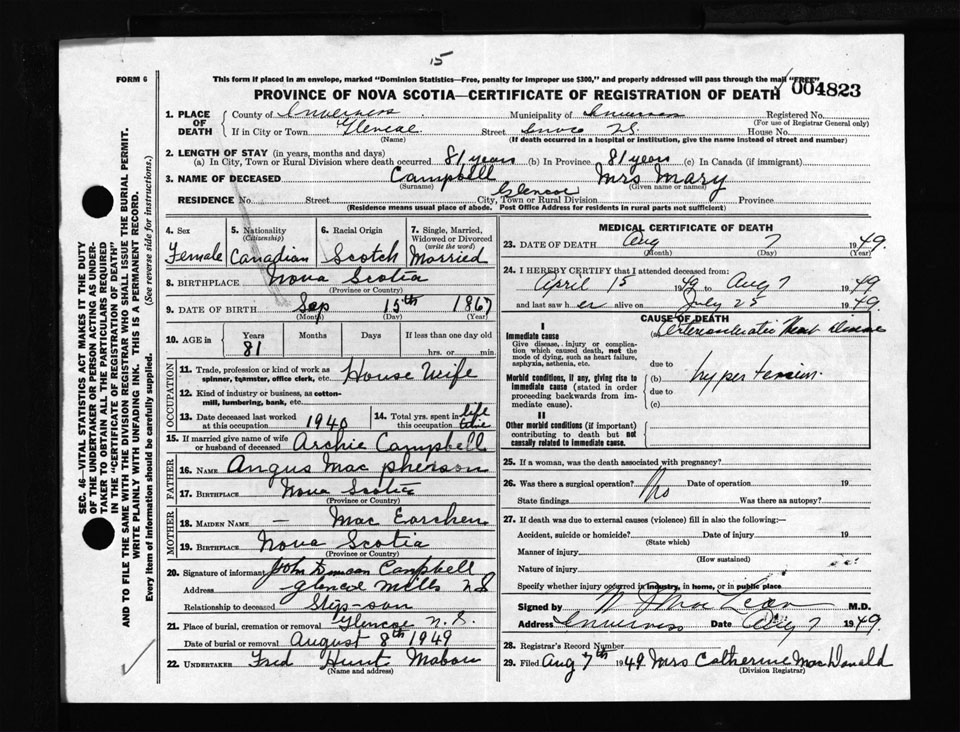 15
FORM 6
This form if placed in an envelope, marked "Dominion Statistics—Free, penalty for improper use $300," and properly addressed will pass through the mail "FREE"
PROVINCE OF NOVA SCOTIA—CERTIFICATE OF REGISTRATION OF DEATH
004823
SEC. 46—VITAL STATISTICS ACT MAKES IT THE DUTY
OF THE UNDERTAKER OR PERSON ACTING AS UNDER-
TAKER TO OBTAIN ALL THE PARTICULARS REQUIRED
IN THE "CERTIFICATE OF REGISTRATION OF DEATH"
AND TO FILE THE SAME WITH THE DIVISION REGISTRAR WHO SHALL ISSUE THE BURIAL PERMIT.
WRITE PLAINLY WITH UNFADING INK. THIS IS A PERMANENT RECORD.
Every item of information should be carefully supplied. (See reverse side for instructions.)
1. PLACE OF DEATH County of Inverness Municipality of Inverness Registered No.
(For use of Registrar General only)
If in City or Town Glencoe Street N.S. House No.
(If death occurred in a hospital or institution, give the name instead of street and number)
2. LENGTH OF STAY (in years, months and days)
(a) In City, Town or Rural Division where death occurred 81 years (b) In Province 81 years (c) In Canada (if immigrant)
3. NAME OF DECEASED Campbell Mrs Mary
(Surname) (Given name or names)
RESIDENCE No. Street City, Town or Rural Division Glencoe Province
(Residence means usual place of abode. Post Office Address for residents in rural parts not sufficient)
4. Sex Female
5. Nationality (Citizenship) Canadian
6. Racial Origin Scotch
7. Single, Married, Widowed or Divorced (write the word) Married
8. BIRTHPLACE Nova Scotia
(Province or Country)
9. DATE OF BIRTH Sep 15th 1867
(Month) (Day) (Year)
10. AGE in Years Months Days If less than one day old
81 hrs. or min.
OCCUPATION
11. Trade, profession or kind of work as spinner, teamster, office clerk, etc. House Wife
12. Kind of industry or business, as cotton-mill, lumbering, bank, etc.
13. Date deceased last worked at this occupation 1940
14. Total yrs. spent in this occupation life time
15. If married give name of wife or husband of deceased Archie Campbell
FATHER
16. NAME Angus Mac pherson
17. BIRTHPLACE Nova Scotia
(Province or Country)
MOTHER
18. MAIDEN NAME — Mac Earchen
19. BIRTHPLACE Nova Scotia
(Province or Country)
20. Signature of informant John Duncan Campbell
Address glencoe Mills N.S
Relationship to deceased Step-son
21. Place of burial, cremation or removal Glencoe N.S.
Date of burial or removal August 8th 1949
22. UNDERTAKER Fred Hunt Mabou
(Name and address)
MEDICAL CERTIFICATE OF DEATH
23. DATE OF DEATH Aug 7 1949.
(Month) (Day) (Year)
24. I HEREBY CERTIFY that I attended deceased from:
April 15 1949 to Aug 7 1949
and last saw her alive on July 25 1949.
CAUSE OF DEATH
I
Immediate cause
Give disease, injury or complication which caused death, not the mode of dying, such as heart failure, asphyxia, asthenia, etc.
(a) Arteriosclerotic Heart Disease
due to
Morbid conditions, if any, giving rise to immediate cause (stated in order proceeding backwards from immediate cause).
(b) hypertension.
due to
(c)
II
Other morbid conditions (if important) contributing to death but not causally related to immediate cause.
25. If a woman, was the death associated with pregnancy?
26. Was there a surgical operation? No Date of operation 19
State findings Was there an autopsy?
27. If death was due to external causes (violence) fill in also the following:—
Accident, suicide or homicide? Date of injury 19
(State which)
Manner of injury
(How sustained)
Nature of injury
Specify whether injury occurred in industry, in home, or in public place
Signed by Mac Lean M.D.
Address Inverness Date Aug 7 1949.
28. Registrar's Record Number
29. Filed Aug 7th 1949. Mrs Catherine MacDonald
(Division Registrar)